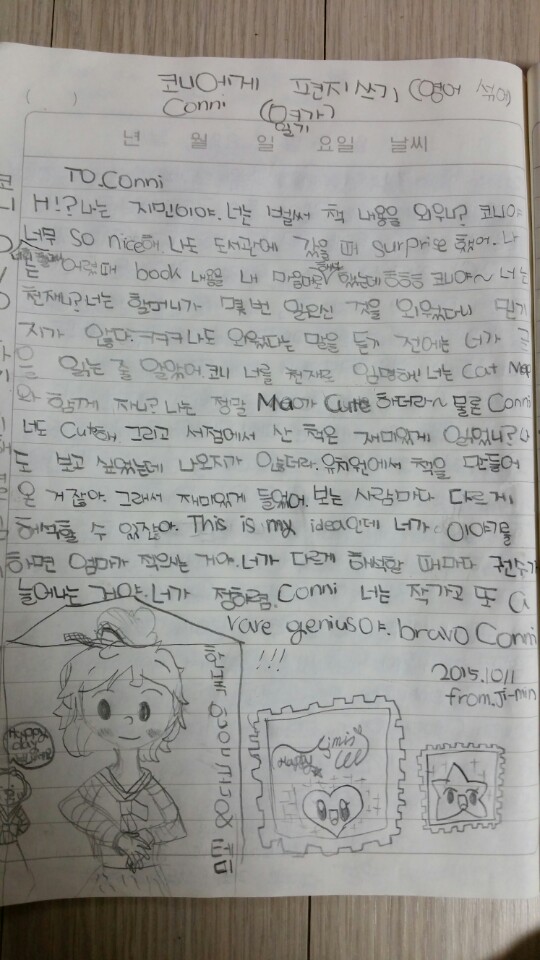 코니에게 편지쓰기(영어 섞어)
Conni
( )
년 월 일 요일 날씨
일기
TO.Conni
Hi!?나는 지민이야.너는 벌써 책 내용을 외우니? 코니야
너무 so nice해.나도 도서관에 갔을 때 surprise 했어.나
는 어렸때 book 내용을 내 마음대로 했는데 ㅎㅎㅎ 코니야~ 너는
천재니?너는 할머니가 몇 번 읽으신 것을 외웠다니 믿기
지가 않다.ㅋㅋㅋ나도 외웠다는 말을 듣기 전에는 너가 글
을 읽는 줄 알았어.코니 너를 천재로 임명해!너는 cat Meo
와 함께 자니?나는 정말 Meo가 cute 하더라~ 물론 Conni
너도 cute해. 그리고 서점에서 산 책은 재미있게 읽었니?나
도 보고 싶었는데 나오지가 않더라.유치원에서 책을 만들어
온 거잖아.그래서 재미있게 들었어.보는 사람마다 다르게
해석할 수 있잖아. This is my idea인데 너가 이야기를
하면 엄마가 적으시는 거야.너가 다르게 해석할 때마다 권수가
늘어나는 거야.너가 정하렴.Conni 너는 작가고 또 a
rare genius야.bravo Conni
!!!
2015.10.11
from.Ji-min
Happy
day
Happy